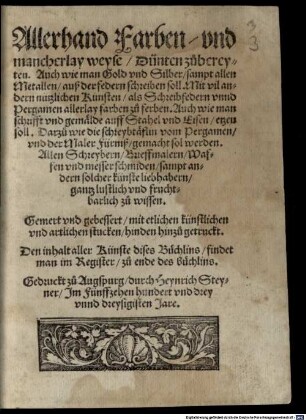 Allerhand Farben/ vnd
mancherlay weyse/ Dünten zůberey-
ten. Auch wie man Gold vnd Silber/ sampt allen
Metallen/ auß der federn schreiben soll. Mit vil an-
dern nutzlichen Künsten/ als Schreibfedern vnnd
Pergamen allerlay farben zů ferben. Auch wie man
schrifft vnd gemälde auff Stahel vnd Eisen/ etzen
soll. Darzů wie die schreybtäflin vom Pergamen/
vnd der Maler Fürniß/ gemacht sol werden.
Allen Schreybern/ Brieffmalern/ Waf-
fen vnd messer schmiden/ sampt an-
dern solcher künste liebhabern/
gantz lustlich vnd frucht-
barlich zů wissen.
Gemert vnd gebessert/ mit etlichen künstlichen
vnd artlichen stucken/ hinden hinzů getruckt.
Den inhalt aller Künste dises Büchlins/ findet
man im Register/ zů ende des büchlins.
Gedruckt zů Augspurg/ durch Heynrich Stey-
ner/ Im Fünffzehen hundert vnd drey
vnnd dreysigisten Jare.